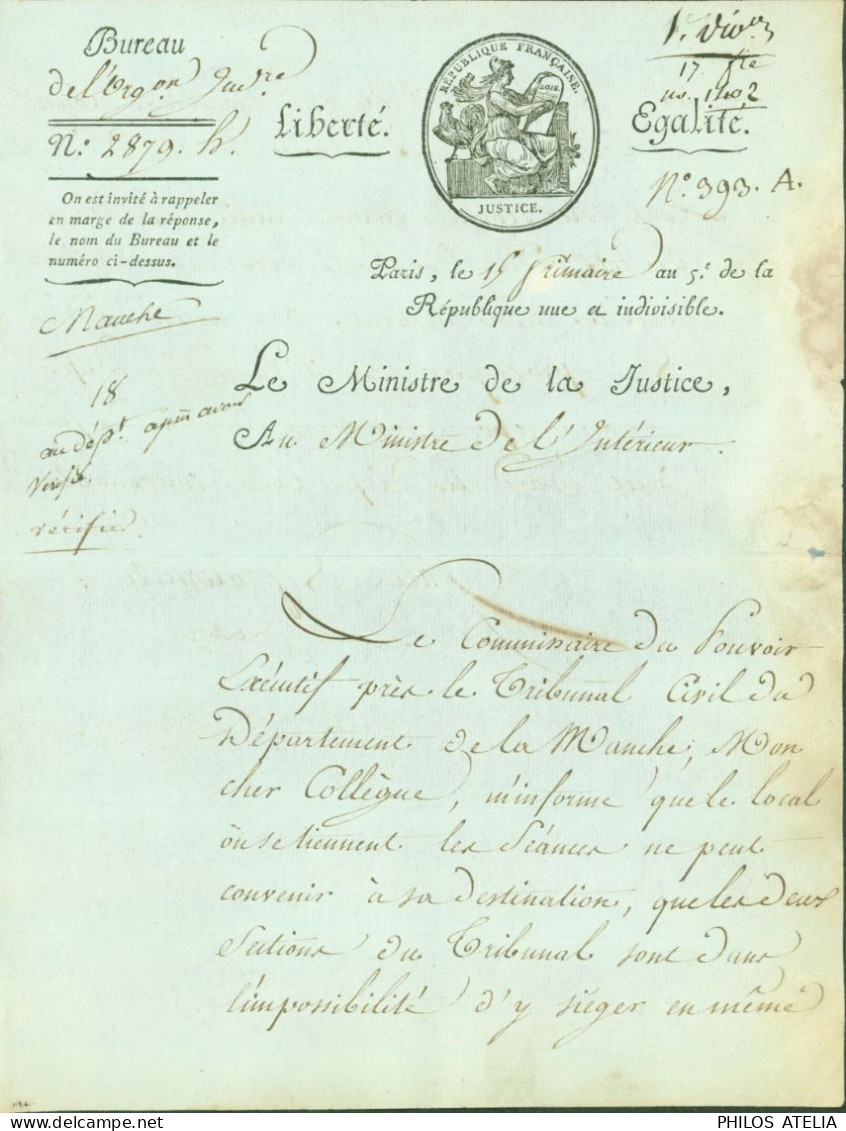 Bureau
de l'Orgon Judre
N.° 2879. h.
On est invité à rappeler
en marge de la réponse,
le nom du Bureau et le
numéro ci-dessus.
Manche
18
au dépt. apm avoir
vérifié
vérifier
Liberté.
RÉPUBLIQUE FRANÇAISE.
LOIS.
JUSTICE.
Egalité.
1e. divon
17 fre
no. 1402
N.° 393. A.
Paris, le 15 frimaire an 5.e de la
République une et indivisible.
Le Ministre de la Justice,
Au Ministre de l'Intérieur.
Le Commissaire du Pouvoir
Exécutif près le Tribunal Civil du
Département de la Manche, Mon
cher Collègue, m'informe que le local
où se tiennent les Séances ne peut
convenir à sa destination, que les deux
Sections du Tribunal sont dans
l'impossibilité d'y siéger en même
PHILOS ATELIA